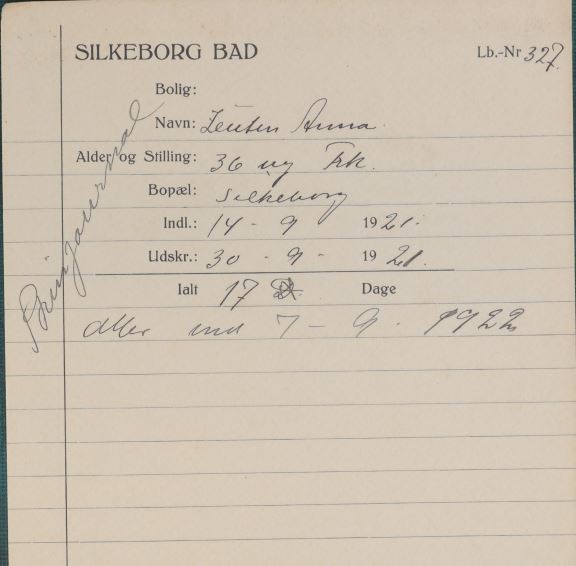 SILKEBORG BAD
Lb.-Nr 327.
Bolig:
Navn: Jensen Anna.
Alder og Stilling: 36 ug Frk.
Bopæl: Silkeborg
Indl.: 14 - 9 1921.
Udskr.: 30 - 9 - 1921.
Ialt 17 Dage
atter ind 7 - 9 - 1922